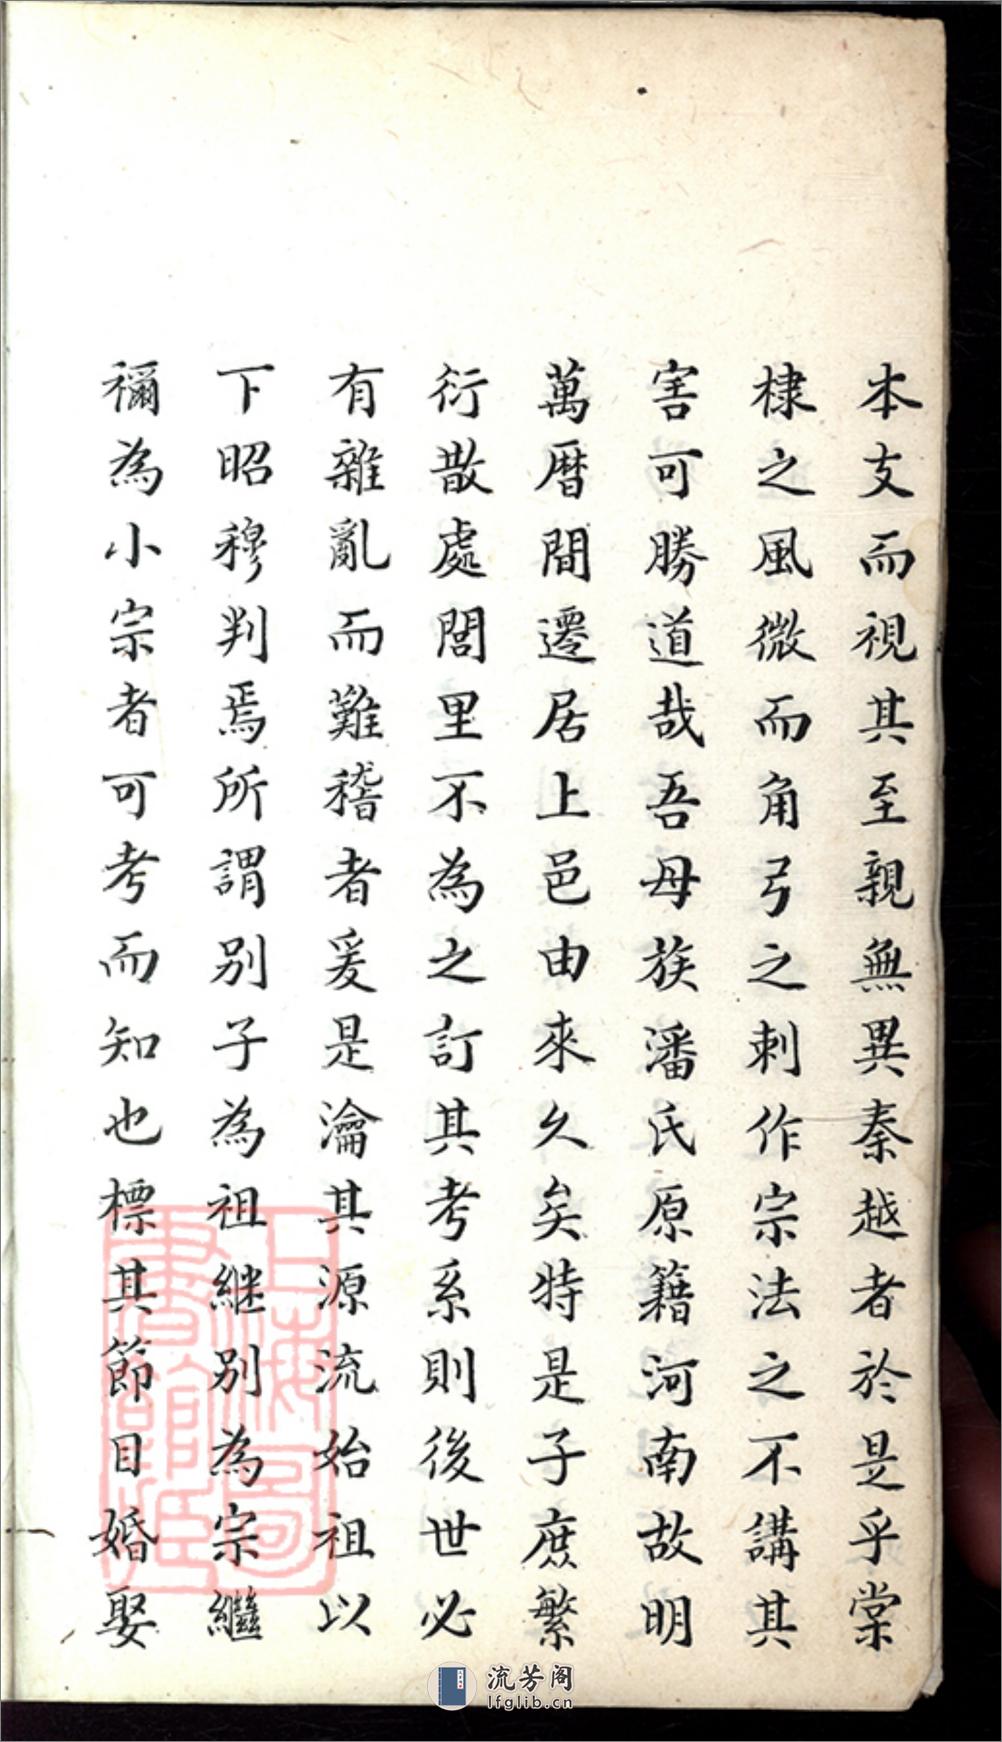 本支而視其至親無異秦越者於是乎棠
棣之風微而角弓之刺作宗法之不講其
害可勝道哉吾母族潘氏原籍河南故明
萬曆間遷居上邑由來久矣特是子庶繁
衍散處閭里不為之訂其考系則後世必
有雜亂而難稽者爰是瀹其源流始祖以
下昭穆判焉所謂別子為祖継別為宗繼
禰為小宗者可考而知也標其節目婚娶
上海圖
書館藏
流芳阁
lfglib.cn